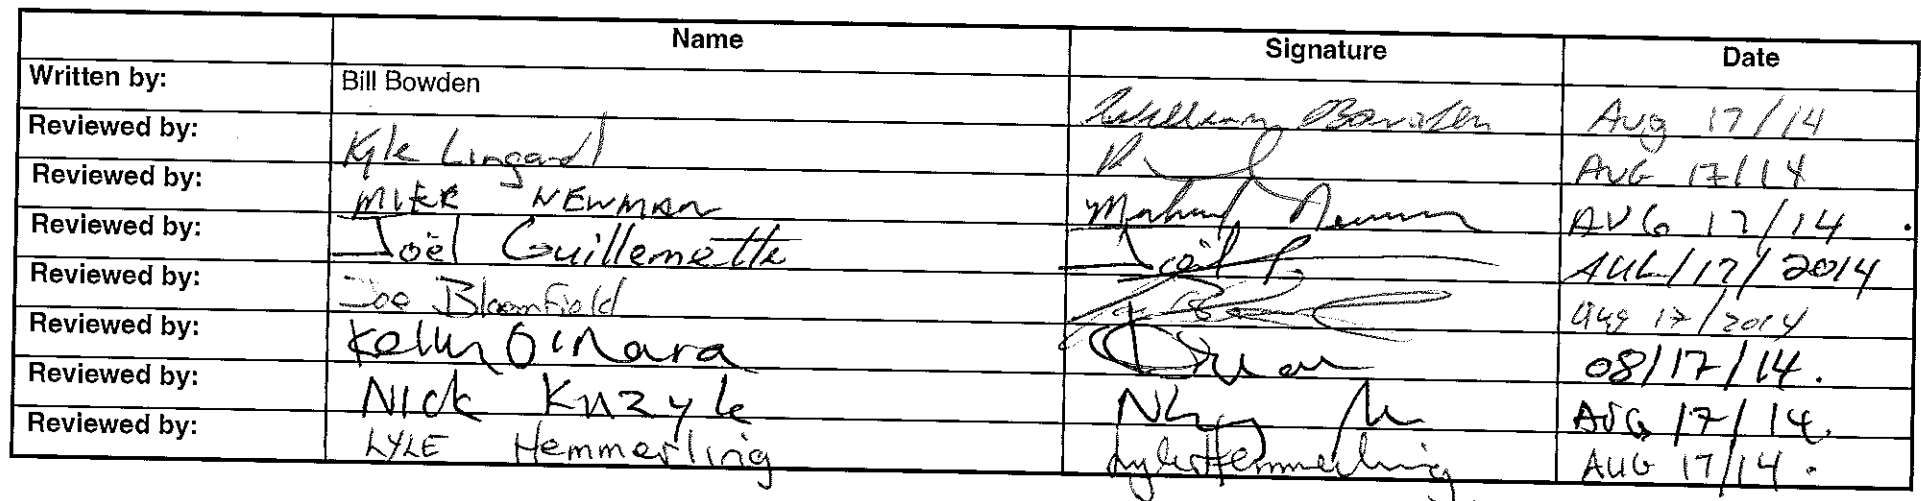 Name Signature Date
Written by: Bill Bowden William Bowden Aug 17/14
Reviewed by: Kyle Lingard AUG 17/14
Reviewed by: MIKE NEWMAN Michael Newman AUG 17/14
Reviewed by: Joël Guillemette Joël G. AUG/17/2014
Reviewed by: Joe Bloomfield Aug 17/2014
Reviewed by: Kelly O'Mara 08/17/14.
Reviewed by: Nick Knzyle AUG 17/14.
Reviewed by: LYLE Hemmerling Lyle Hemmerling AUG 17/14.